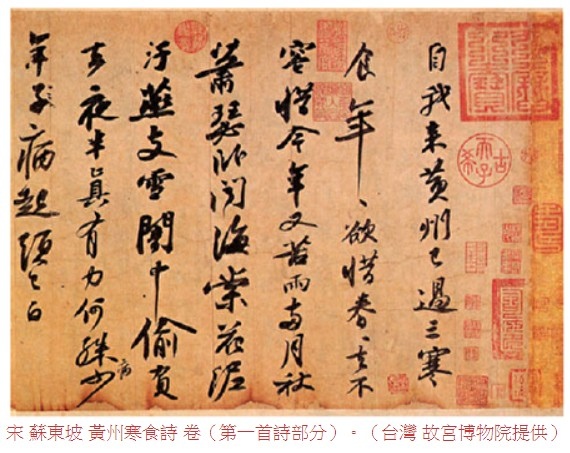 自我來黃州已過三寒
食年〻欲惜春〻去不
容惜今年又苦雨兩月秋
蕭瑟卧聞海棠花泥
汙燕支雪闇中偷負
去夜半真有力何殊病少
年子病起頭已白
古希天子
宋 蘇東坡 黃州寒食詩 卷（第一首詩部分）。（台灣 故宮博物院提供）